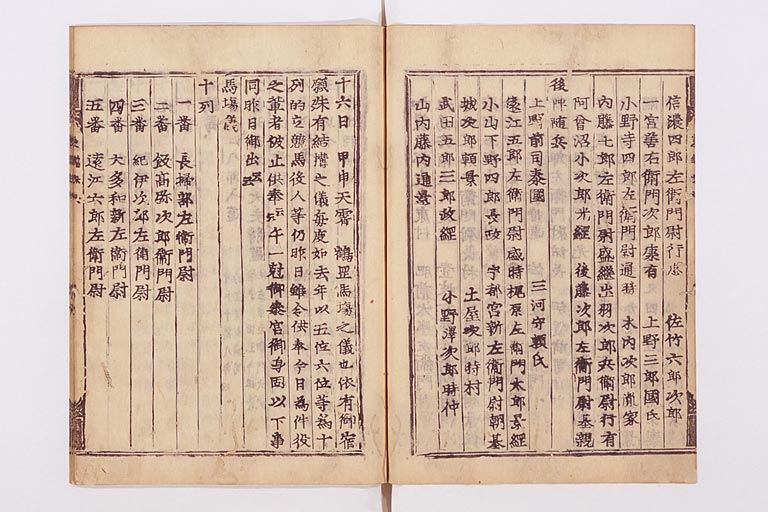 信濃四郎左衛門尉行忠 佐竹六郎次郎
一宮善右衛門次郎康有 上野三郎國氏
小野寺四郎左衛門尉通時 木内次郎胤家
内藤七郎左衛門尉盛継 出羽次郎兵衛尉行有
阿曾沼小次郎光経 後藤次郎左衛門尉基親
後陣随兵
上野前司泰國 三河守頼氏
遠江五郎左衛門尉盛時 梶原左衛門太郎景経
小山下野四郎長政 宇都宮新左衛門尉朝基
城次郎頼景 土屋次郎時村
武田五郎三郎政綱 小野澤次郎時仲
山内藤内通景
十六日 甲申天霽 鶴罡馬場之儀也依有御宿
願殊有結搆之儀毎度如去年以五位六位等為十
列的立競馬役人等仍昨日雖令供奉今日為件役
之輩者被止供奉云云午一剋御參宮御身固以下事
同昨日御出云云
馬場儀
十列
一番 長掃部左衛門尉
二番 鎰髙弥次郎衛門尉
三番 紀伊次郎左衛門尉
四番 大多和新左衛門尉
五番 遠江六郎左衛門尉